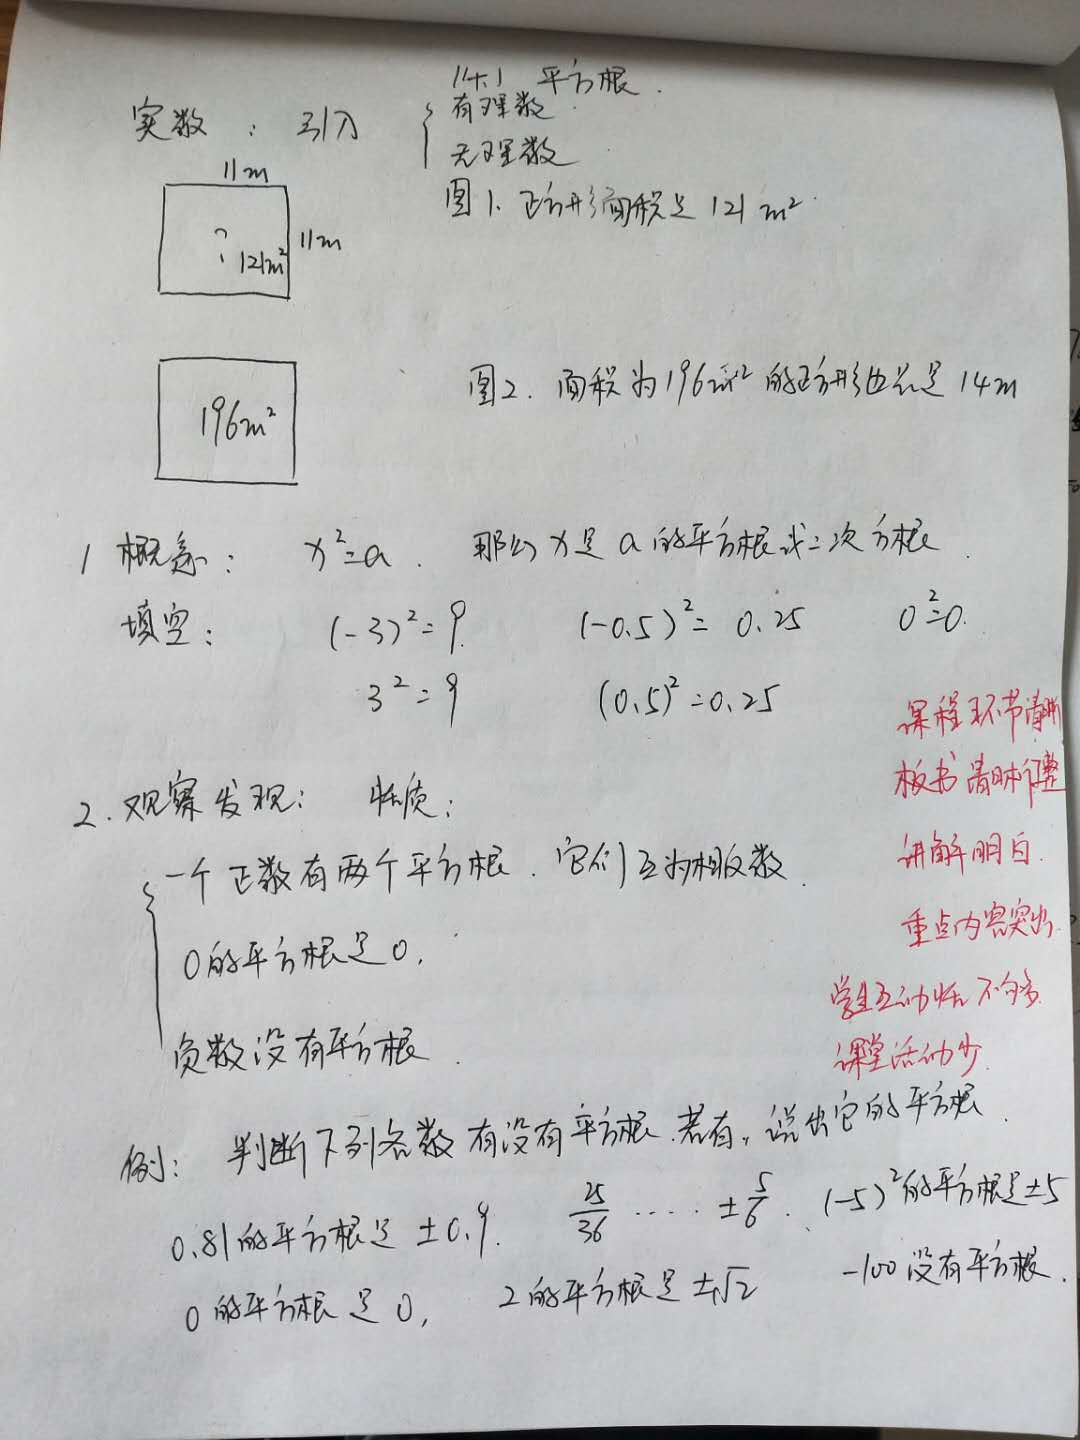 14.1 平方根.
实数: 引入 { 有理数
无理数
11m
图1. 正方形面积是 121 m².
? 121m² 11m
196m² 图2. 面积为196m²的正方形边长是 14m
1 概念: x²=a. 那么 x是 a 的平方根或二次方根.
填空: (-3)²=9. (-0.5)²= 0.25 0²=0.
3²=9 (0.5)²=0.25
课程环节清晰
板书清晰完整
2. 观察发现: 性质:
讲解明白.
一个正数有两个平方根. 它们互为相反数.
重点内容突出.
0的平方根是0.
学生互动性不够多.
负数没有平方根.
课堂活动少.
例: 判断下列各数有没有平方根.若有,说出它的平方根.
0.81的平方根是 ±0.9. 25/36 ..... ±5/6. (-5)²的平方根是±5
0的平方根是 0, 2的平方根是±√2 -100没有平方根.